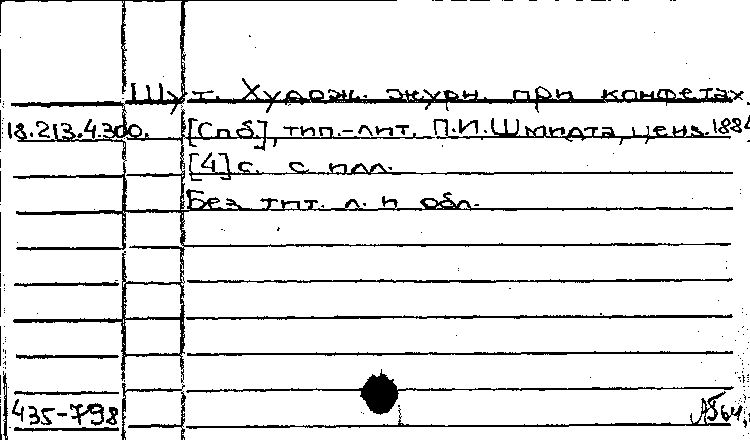 Шут. Худож. журн. при конфетах.
18.213.4.300. [Спб], тип.-лит. П.И.Шмидта, ценз. 1884
[4] с. с илл.
Без тит. л. и обл.
435-798